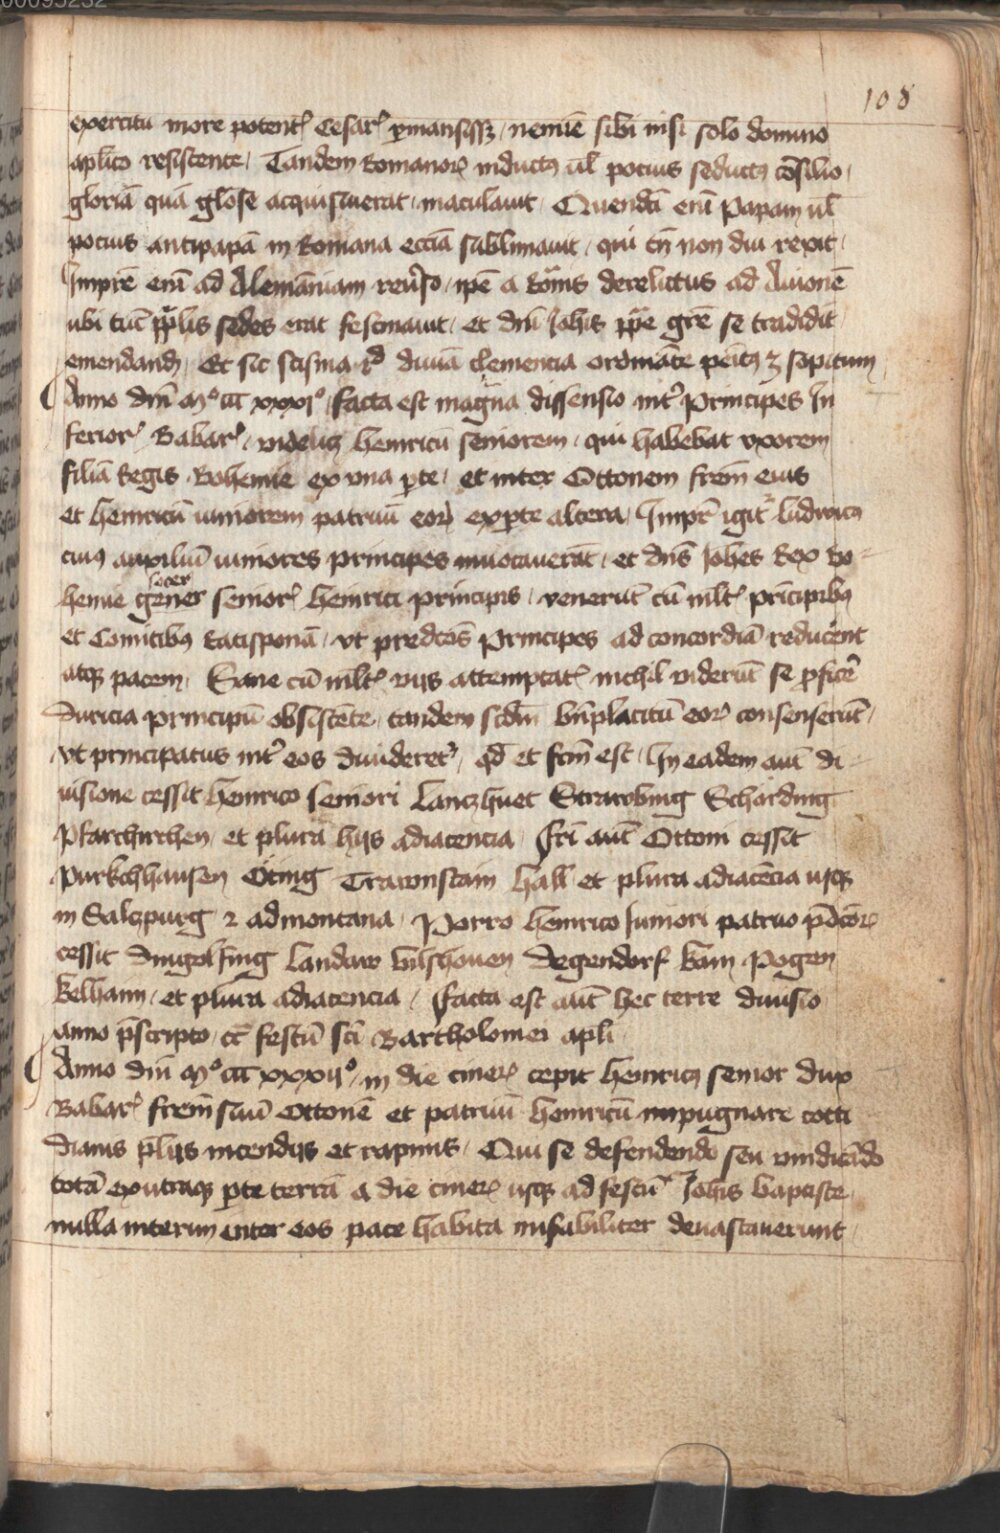 00095232
108
exercitu more potent Cesar pmansissz nemīe sibi nisi solo domino
aplico resistente Tandem Romanor inductꝰ ul pocius seductꝰ cōsilio
gloriā quā gliose acquisiuerat maculauit Quendā enī Papam ul
pocius antipapā in Romana ecciā sublimauit qui tn̄ non diu rexit
Impre enī ad Alemāniam reuso ipe a Romis derelictus ad Auionē
ubi tūc pplis sedes erat festinauit et dni Johis ppe gre se tradidit
emendandū Et sic scisma id diuiā clemencia ordinante penitꝰ ⁊ sopitum
Anno dni Mº ccc xxxiº facta est magna dissensio int Principes In
ferior Babar videlicz Heinricū seniorem qui habebat vxorem
filiā Regis Bohemie ex vna pte et inter Ottonem frem eius
et Heinricū iuniorem patruū eor ex pte altera Impr igit Ludwicꝰ
cuiꝰ auxiliū iuniores principes inuocauerāt et dns Johes Rex Bo
hemie gener socer senior Heinrici principis venerūt cū mlt pricipibꝰ
et Comitibꝰ Ratisponā vt predcos Principes ad concordiā reducent
atqꝫ pacem Sane cū mlt vijs attemptat nichil viderūt se pficē
Duricia principū obsistēte tandem scdm bnplacitū eor consenserūt
vt principatus int eos diuideret qd et fcm est In eadem aut di
uisione cessit Heinrico seniori Lanczhuet Strawbing Scharding
Pfarchirchen et plura hijs adiacencia Fri aut Ottoni cessit
Purkchhausen Oting Trawnstain Hall et plura adiacēcia usqꝫ
in Salczpurg ⁊ ad montana Porro Heinrico Juniori patruo pdcor
cessit Dingolfing Landaw Vilshouen Degendorf Kam Pogen
Kelhaim et plura adiacencia Facta est aut hec terre diuisio
anno pscripto cc festū sci Bartholomei apli
Anno dni Mº ccc xxxijº in die ciner cepit Heinricꝰ senior dux
Babar frem suū Ottonē et patruū Heinricū impugnare cotti
dianis plijs incendijs et rapinis Qui se defendendo seu vindicādo
totā ex utraqꝫ pte terrā a die ciner usqꝫ ad festū Johis baptiste
nulla interim inter eos pace habita misabiliter deuastauerunt